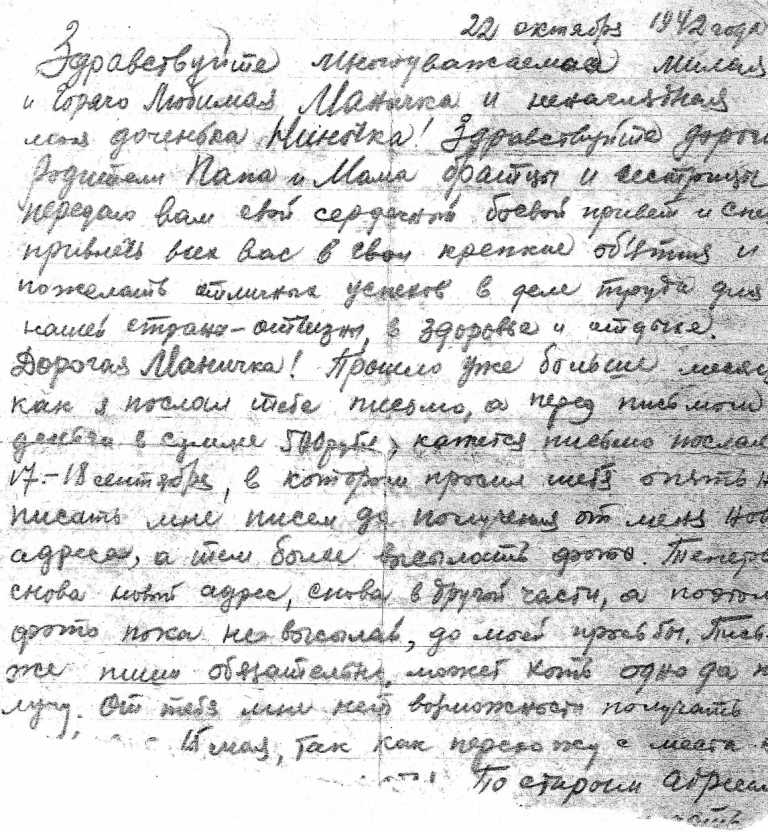 22 октября 1942 года
Здравствуйте многоуважаемая милая
и горячо Любимая Маничка и ненаглядная
моя доченька Ниночка! Здравствуйте дорог
Родители Папа и Мама братцы и сестрицы
передаю вам свой сердечный боевой привет и
привлечь всех вас в свои крепкие объятия и
пожелать отличных успехов в деле труда для
нашей страны-отчизны, в здоровье и отдыхе.
Дорогая Маничка! Прошло уже больше меся
как я послал тебе письмо, а перед письмом
деньги в сумме 500 рубл, кажется письмо послал
17-18 сентября, в котором просил тебя опять н
писать мне писем до получения от меня нов
адреса, а тем более высылать фото. Тепер
снова новый адрес, снова в другой части, а поэтом
фото пока не высылай, до моей просьбы. Пись
же пиши обязательно, может хоть одно да п
лучу. От тебя мне нет возможности получать
15 мая, так как перехожу с места
По старым адресам